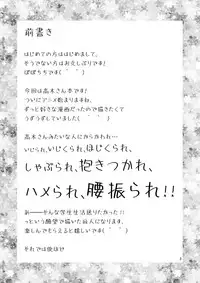 前書き
はじめての方ははじめまして、
そうでない方はお久しぶりです!
ぽぽちちです(´｀´)
今回は高木さん本です!
ついにアニメ始まりますね。
ずっと好きな漫画だったので描きたくて
うずうずしていました(´｀´)
高木さんみたいな人にからかわれ…
いじられ、いじくられ、はじくられ、
しゃぶられ、抱きつかれ、
ハメられ、腰振られ!!
あーーそんな学生生活送りたかった!!
っという願望で描いた同人になります。
楽しんでもらえると嬉しいです(´｀´)
それでは後ほど